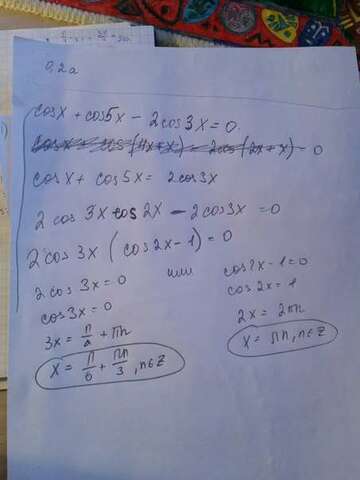 9,2a
cosx + cos5x - 2cos3x = 0.
cosx + cos(4x+x) - 2cos(2x+x) = 0
cosx + cos5x = 2cos3x
2cos3x cos2x - 2cos3x = 0
2cos3x (cos2x-1) = 0
2cos3x = 0 или cos2x-1=0
cos3x = 0 cos2x = 1
3x = π/2 + πn 2x = 2πn
x = π/6 + πn/3, n∈Z x = πn, n∈Z